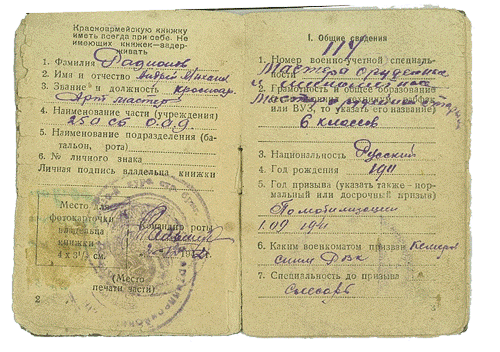 Красноармейскую книжку
иметь всегда при себе. Не
имеющих книжек—задер-
живать
1. Фамилия Радионов
2. Имя и отчество Андрей Михаил
3. Звание и должность красноар.
Арт мастер
4. Наименование части (учреждения)
250 СП
5. Наименование подразделения (ба-
тальон, рота)
6. № личного знака
Личная подпись владельца книжки
Место для
фотокарточки
владельца
книжки
4 x 3½ см.
Командир роты
(Место
печати части)
2
I. Общие сведения
114
1. Номер военно-учетной специаль-
ности Мастера орудейные
2. Грамотность и общее образование
или ВУЗ, то указать его название)
6 классов
3. Национальность Русский
4. Год рождения 1911
5. Год призыва (указать также - нор-
мальный или досрочный призыв)
По мобилизации
1.09 1941
6. Каким военкоматом призван Кемеров
ским РВК
7. Специальность до призыва
Слесарь
3